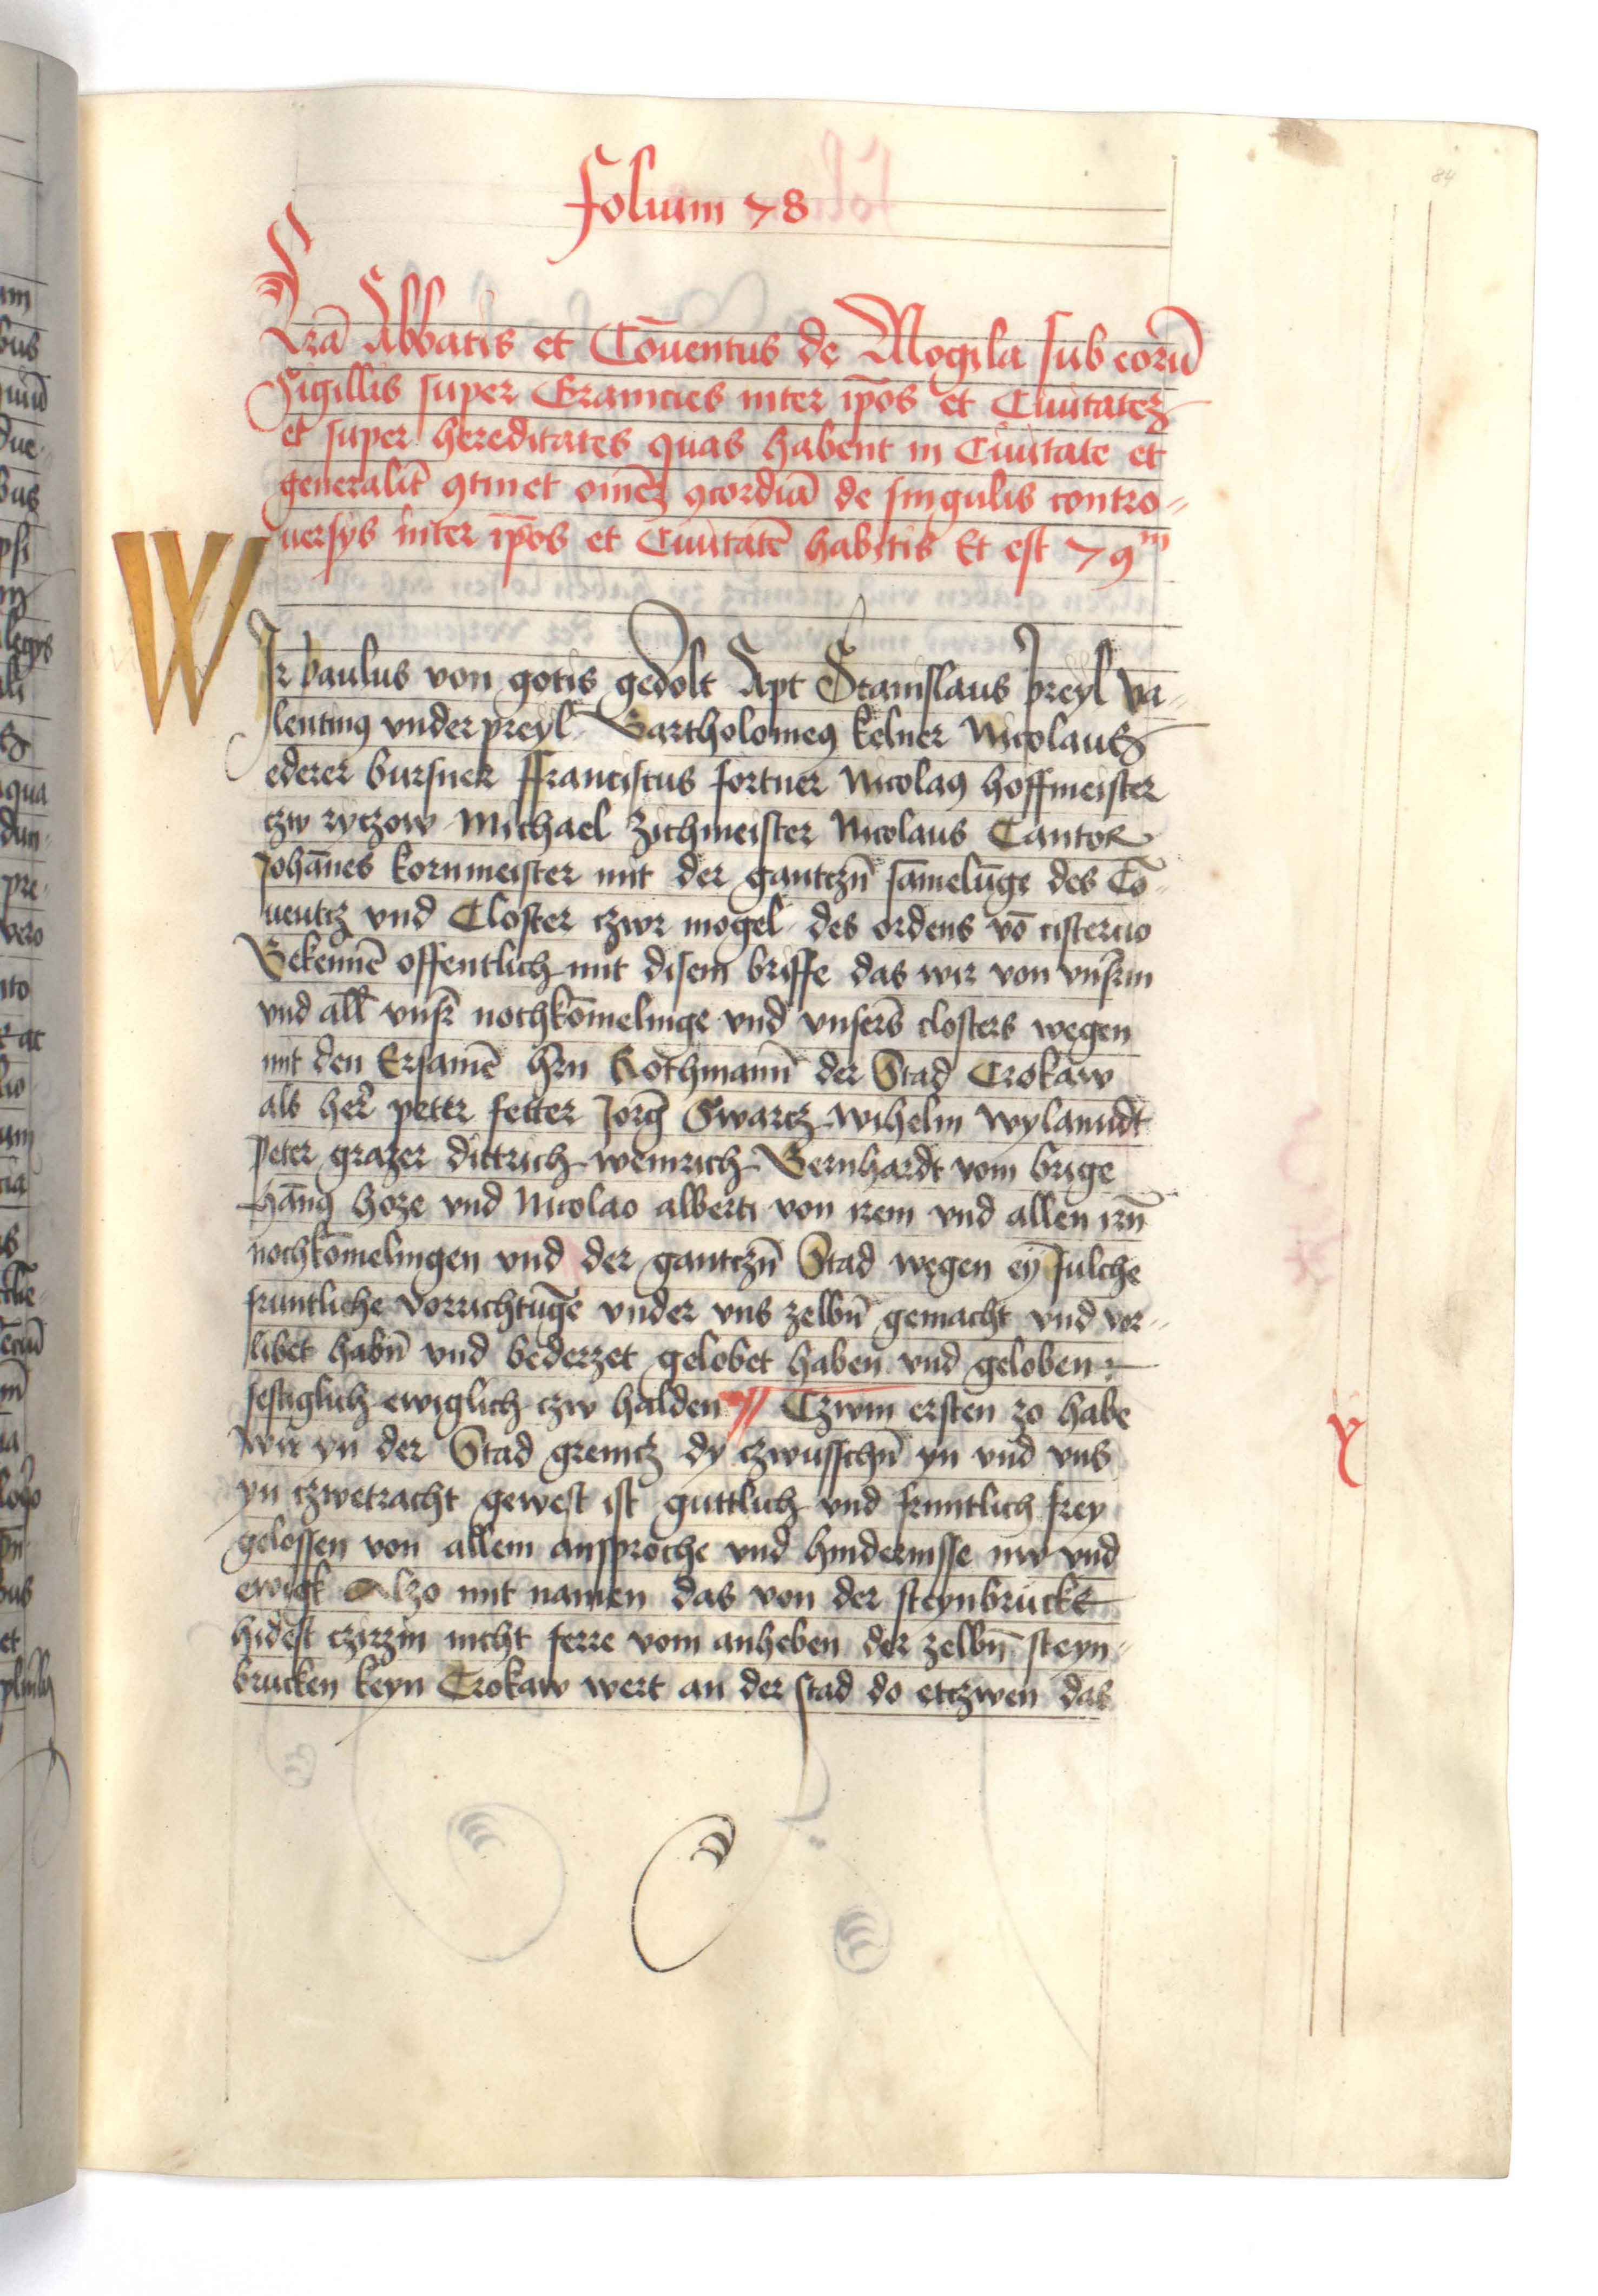 84
folium 78
Lrā Abbatis et Cōuentus de Mogila sub eorū
Sigillis super Granicies inter ip̄os et Ciuitatez
et super hereditates quas habent in Ciuitate et
generalit̄ ꝯtinet om̄ez ꝯcordiā de singulis contro-
uersijs inter ip̄os et Ciuitatē habitis Et est 79m
WIr paulus von gotis gedolt Apt Stanislaus preyl va-
lentinꝰ vnder preyl Bartholomeꝰ kelner Nicolaus
ederer bursner ffranciscus fortner Nicolaꝰ hoffmeister
czw ryczow Michael Zichmeister Nicolaus Cantor
Johān̄es kornmeister mit der gantczn̄ sāmelūge des Cō-
uentcz vnd Closter czwr mogel des ordens vō cistercio
Bekennē offentlich mit disem briffe das wir von vnsrin
vnd all vnsr̄ nochkōmelinge vnd vnsers closters wegen
mit den Ersamē hrn Rothmann̄ der Stad Crokaw
als her̄ peter fetter Jorḡ Swarcz wilhelm wylandt
peter grazer dittrich weinrich Bernhardt vom brige
hānꝰ hoze vnd Nicolao alberti von irem vnd allen irn̄
nochkōmelingen vnd der gantczn̄ Stad wegen eȳ sulche
fruntliche vorrichtūge vnder vns zelbn̄ gemacht vnd vor-
libet habn̄ vnd bederzet gelobet haben vnd geloben
festiglich ewiglich czw halden Czwm ersten zo habe
wir yn der Stad grenicz dy czwusschn̄ yn vnd vns
yn czwetracht gewest ist guttlich vnd fruntlich frey
gelossen von allem ansproche vnd hindernisse nw vnd
ewigk Alzo mit namen das von der steynbrucke
hidest czirzin nicht ferre vom anheben der zelbn̄ steyn-
brucken keyn Crokaw wert an der stad do etczwen das